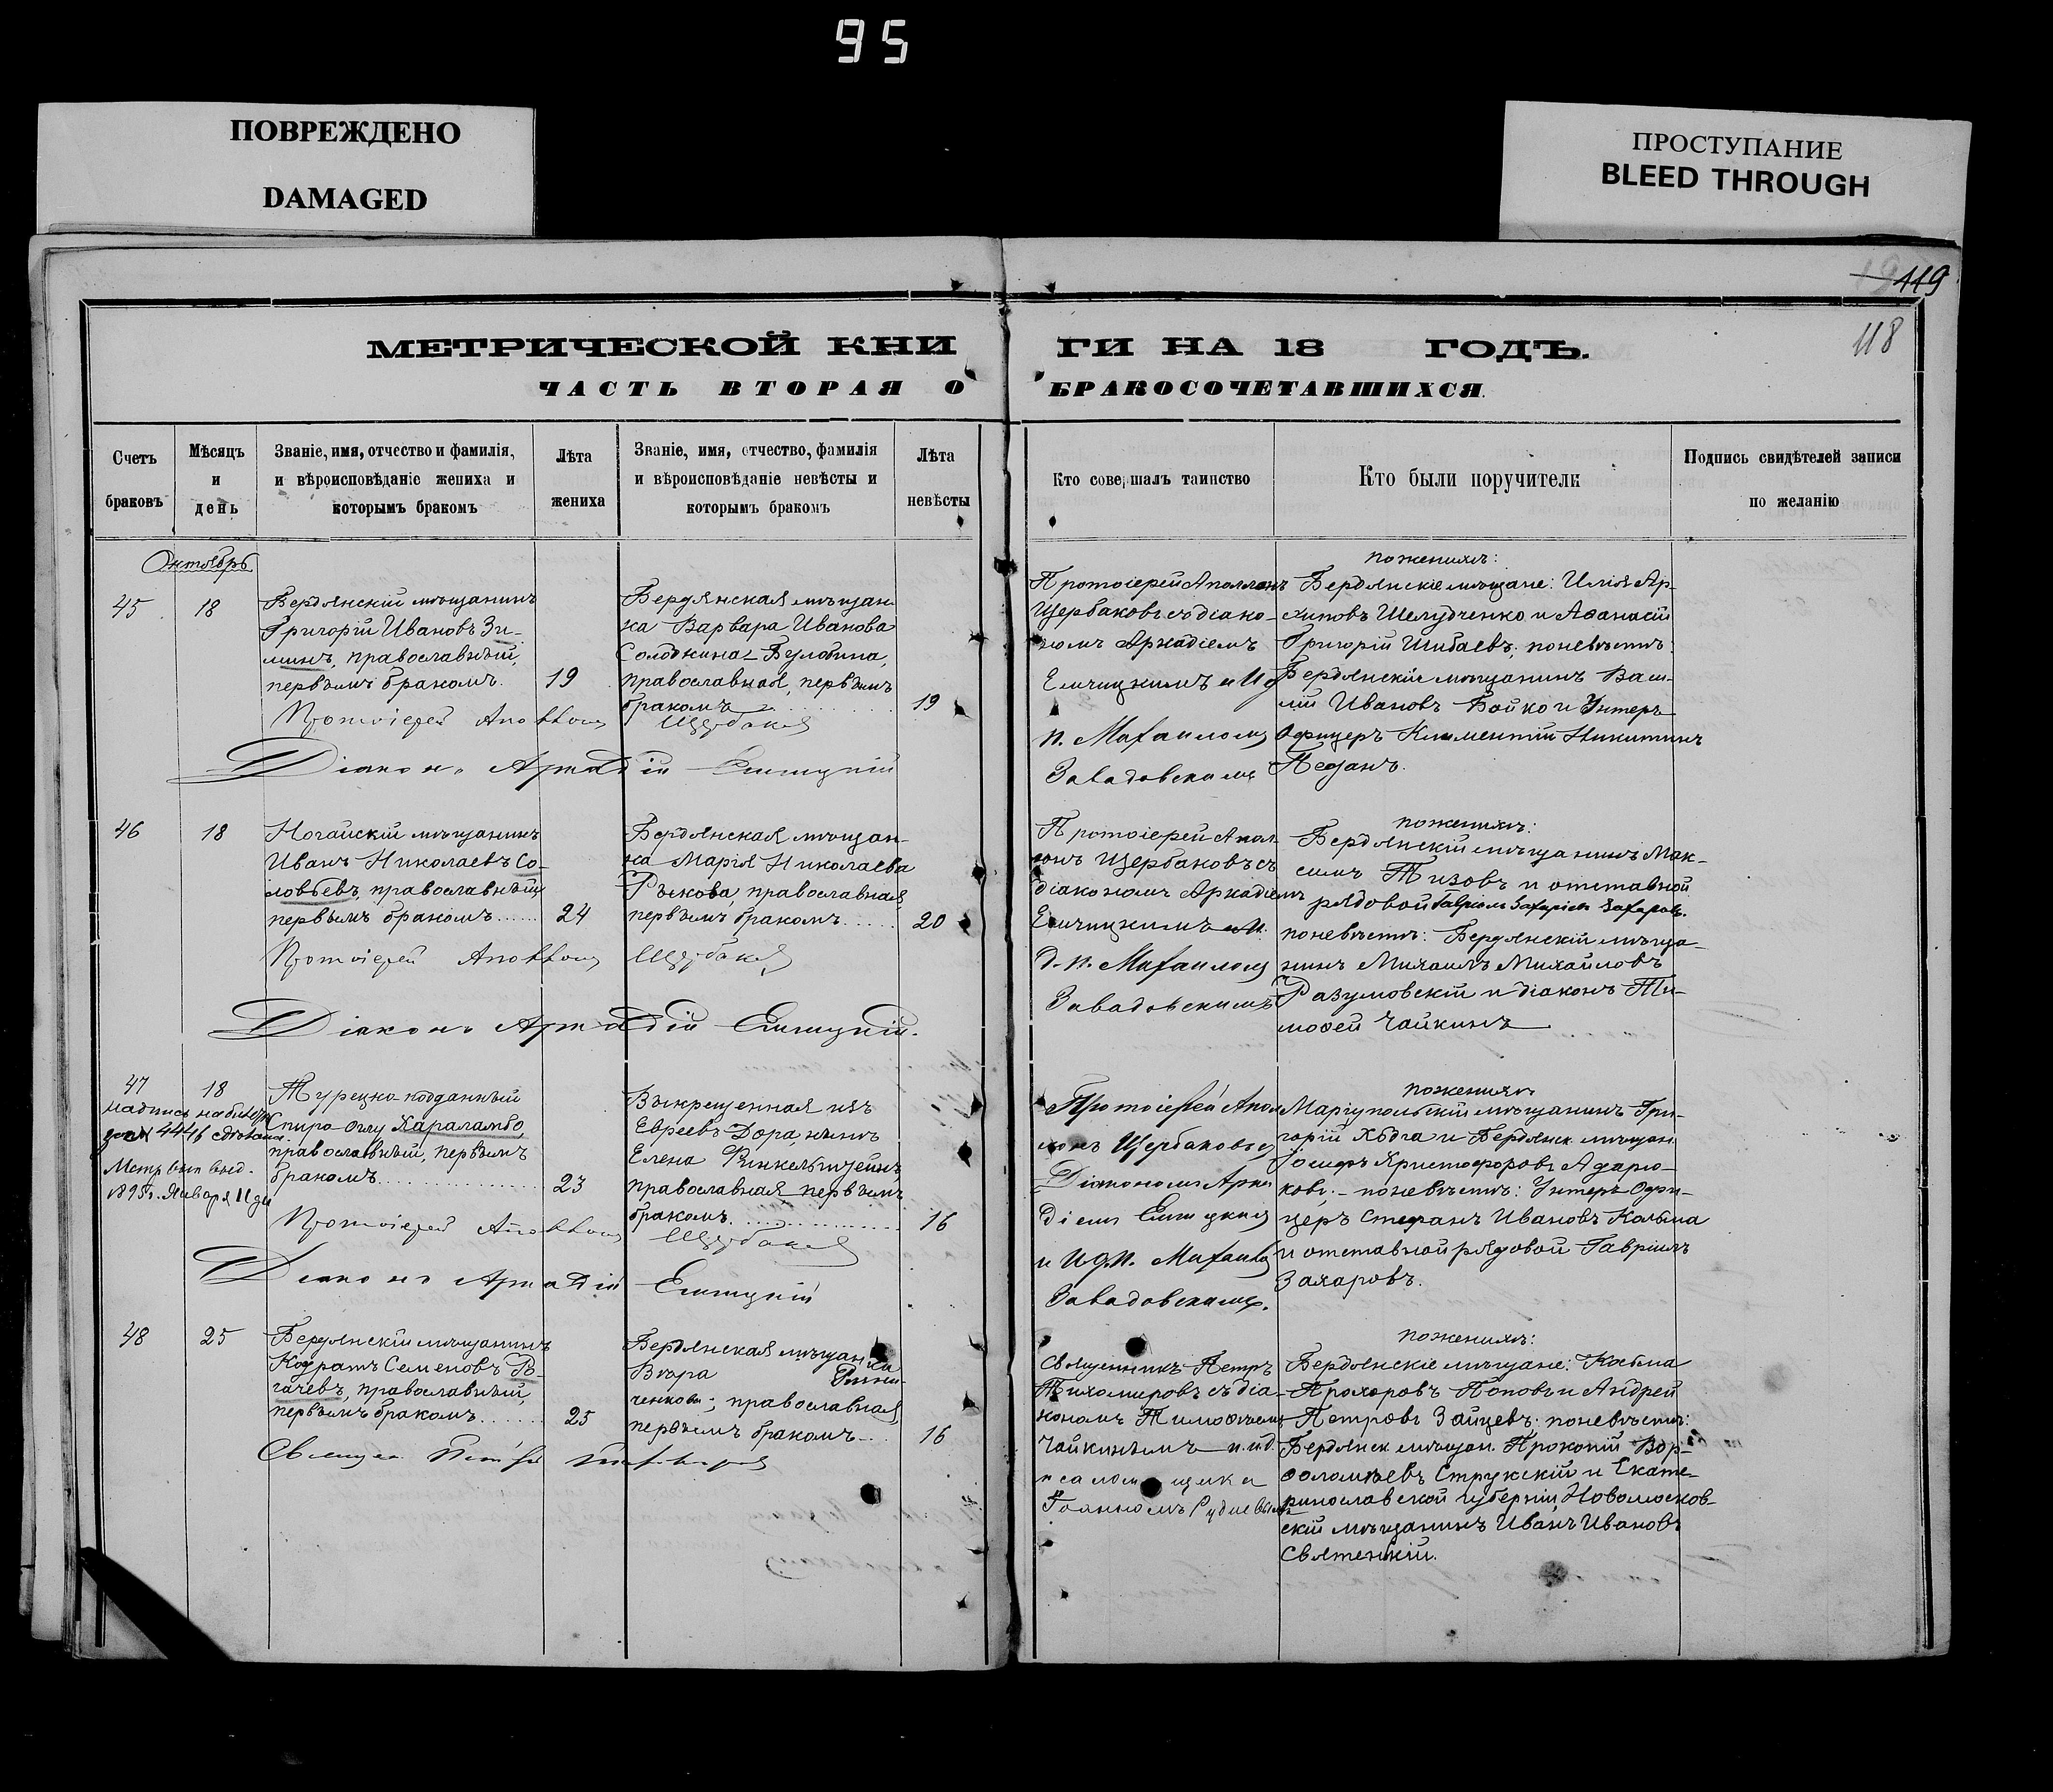 95
ПОВРЕЖДЕНО
DAMAGED
ПРОСТУПАНИЕ
BLEED THROUGH
119
118
МЕТРИЧЕСКОЙ КНИ ГИ НА 18 ГОДЪ.
ЧАСТЬ ВТОРАЯ О БРАКОСОЧЕТАВШИХСЯ.
Счетъ
браковъ
Мѣсяцъ
и
день
Званіе, имя, отчество и фамилія,
и вѣроисповѣданіе жениха и
которымъ бракомъ
Лѣта
жениха
Званіе, имя, отчество, фамилія
и вѣроисповѣданіе невѣсты и
которымъ бракомъ
Лѣта
невѣсты
Кто совершалъ таинство
Кто были поручители
Подпись свидѣтелей записи
по желанію
Октябрь
45
18
Бердянскій мѣщанинъ
Григорій Ивановъ Зи-
минъ, православный,
первымъ бракомъ.
19
Бердянская мѣщан-
ка Варвара Иванова
православная, первымъ
бракомъ
19
Протоіерей Аполлонъ
Щербаковъ съ діако-
номъ Аркадіемъ
Емчицкимъ и И д
п. Михаиломъ
Завадовскимъ
по женихѣ:
Бердянскіе мѣщане: Илія Ар-
хиповъ Шелудченко и Аѳанасій
Григорій Шибаевъ; по невѣстѣ:
Бердянскій мѣщанинъ Васи-
лій Ивановъ Бойко и Унтеръ
Офицеръ Климентій Никитинъ
Протоіерей Аполлонъ Щербаковъ
Діаконъ Аркадій Емчицкій
46
18
Ногайскій мѣщанинъ
Иванъ Николаевъ Со-
ловьевъ, православный,
первымъ бракомъ
24
Бердянская мѣщан-
ка Марія Николаева
Рыкова, православная,
первымъ бракомъ
20
Протоіерей Апол-
лонъ Щербаковъ съ
діакономъ Аркадіемъ
Емчицкимъ и И.
д. п. Михаиломъ
Завадовскимъ
по женихѣ:
Бердянскій мѣщанинъ Мак-
симъ Тизовъ и отставной
рядовой Гавріилъ Захаріевъ Захаровъ.
по невѣстѣ: Бердянскій мѣща-
нинъ Михаилъ Михайловъ
Разумовскій и діаконъ Ти-
моѳей Чайкинъ
Протоіерей Аполлонъ Щербаковъ
Діаконъ Аркадій Емчицкій.
47
18
Метр. вып. выд.
1895 г. Января 11 дня
Турецко-подданный
Спиро-Оглу Харалампо,
православный, первымъ
бракомъ
23
Выкрещенная изъ
Евреевъ Дора, нынѣ
Елена Финкельштейнъ,
православная первымъ
бракомъ
16
Протоіерей Апол-
лонъ Щербаковъ съ
Діакономъ Арка-
діемъ Емчицкимъ
и И. д. п. Михаиломъ
Завадовскимъ.
по женихѣ
Маріупольскій мѣщанинъ Гри-
горій Хаджа и Бердянск. мѣщан.
Іосифъ Христофоровъ
по невѣстѣ: Унтеръ Офи-
церъ Стефанъ Ивановъ
и отставной рядовой Гавріилъ
Захаровъ.
Протоіерей Аполлонъ Щербаковъ
Діаконъ Аркадій Емчицкій
48
25
Бердянскій мѣщанинъ
Кодратъ Семеновъ Ро-
гачевъ, православный,
первымъ бракомъ
25
Бердянская мѣщанка
Вѣра
ченкова; православная,
первымъ бракомъ
16
Священникъ Петръ
Тихомировъ съ діа-
кономъ Тимоѳеемъ
Чайкинымъ и и. д.
псаломщика
Іоанномъ Рудневымъ
по женихѣ:
Бердянскіе мѣщане: Косьма
Прохоровъ Поповъ и Андрей
Петровъ Зайцевъ; по невѣстѣ:
Бердянск. мѣщан. Прокопій Вар-
ѳоломѣевъ Струкскій и Екате-
ринославской губерніи, Новомосков-
скій мѣщанинъ Иванъ Ивановъ
Святенкій.
Священ. Петръ Тихомировъ